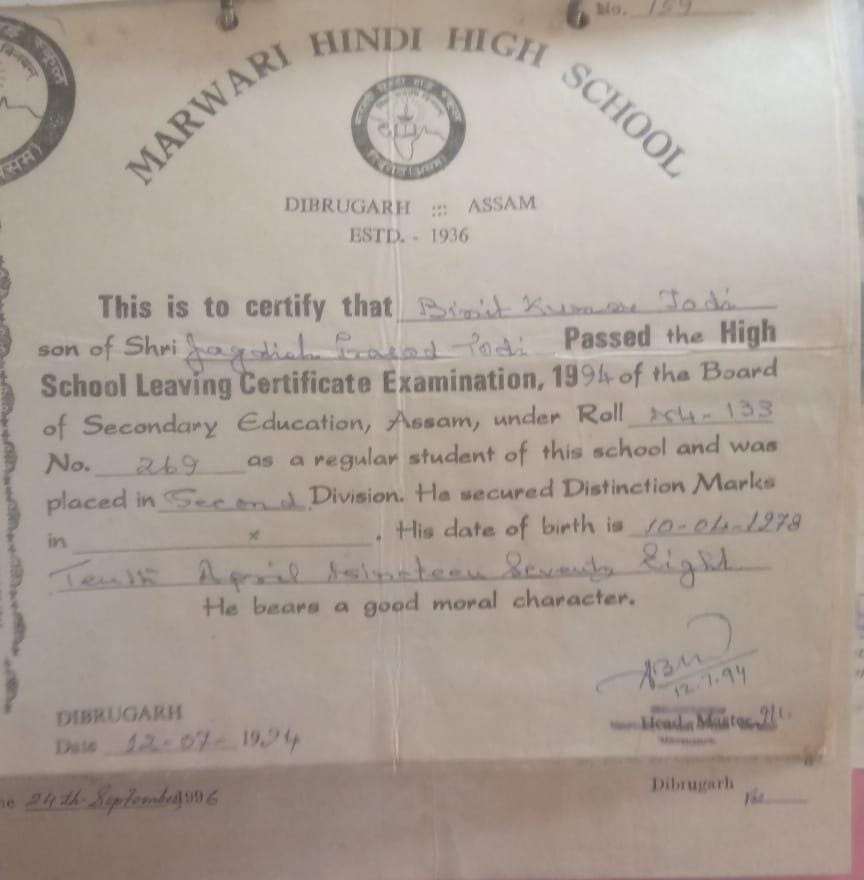 No. 159
MARWARI HINDI HIGH SCHOOL
DIBRUGARH ::: ASSAM
ESTD. - 1936
This is to certify that Binit Kumar Todi
son of Shri Jagdish Prasad Todi Passed the High
School Leaving Certificate Examination, 1994 of the Board
of Secondary Education, Assam, under Roll - 133
No. 269 as a regular student of this school and was
placed in Second Division. He secured Distinction Marks
in x . His date of birth is 10-04-1978
Tenth April Nineteen Seventy Eight
He bears a good moral character.
12.7.94
DIBRUGARH
Head Master 9/1.
Date 12-07-1994
24th September 1996
Dibrugarh